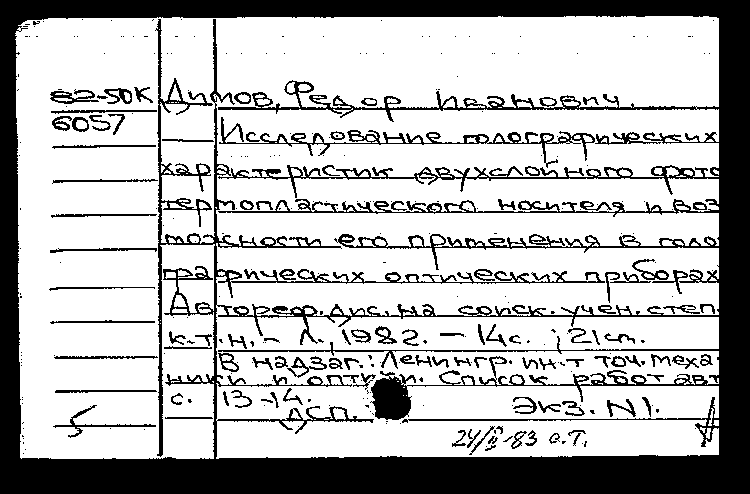 82-50К Димов, Федор Иванович.
6057 Исследование голографических
характеристик двухслойного фото
термопластического носителя и воз
можности его применения в голо
графических оптических приборах
Автореф. дис. на соиск. учен. степ.
к.т.н. - Л., 1982. - 14с. ; 21см.
В надзаг.: Ленингр. ин-т точ. меха
ники и оптики. Список работ авт
с. 13-14.
5 ДСП. Экз. N1.
24/II-83 о.Т.